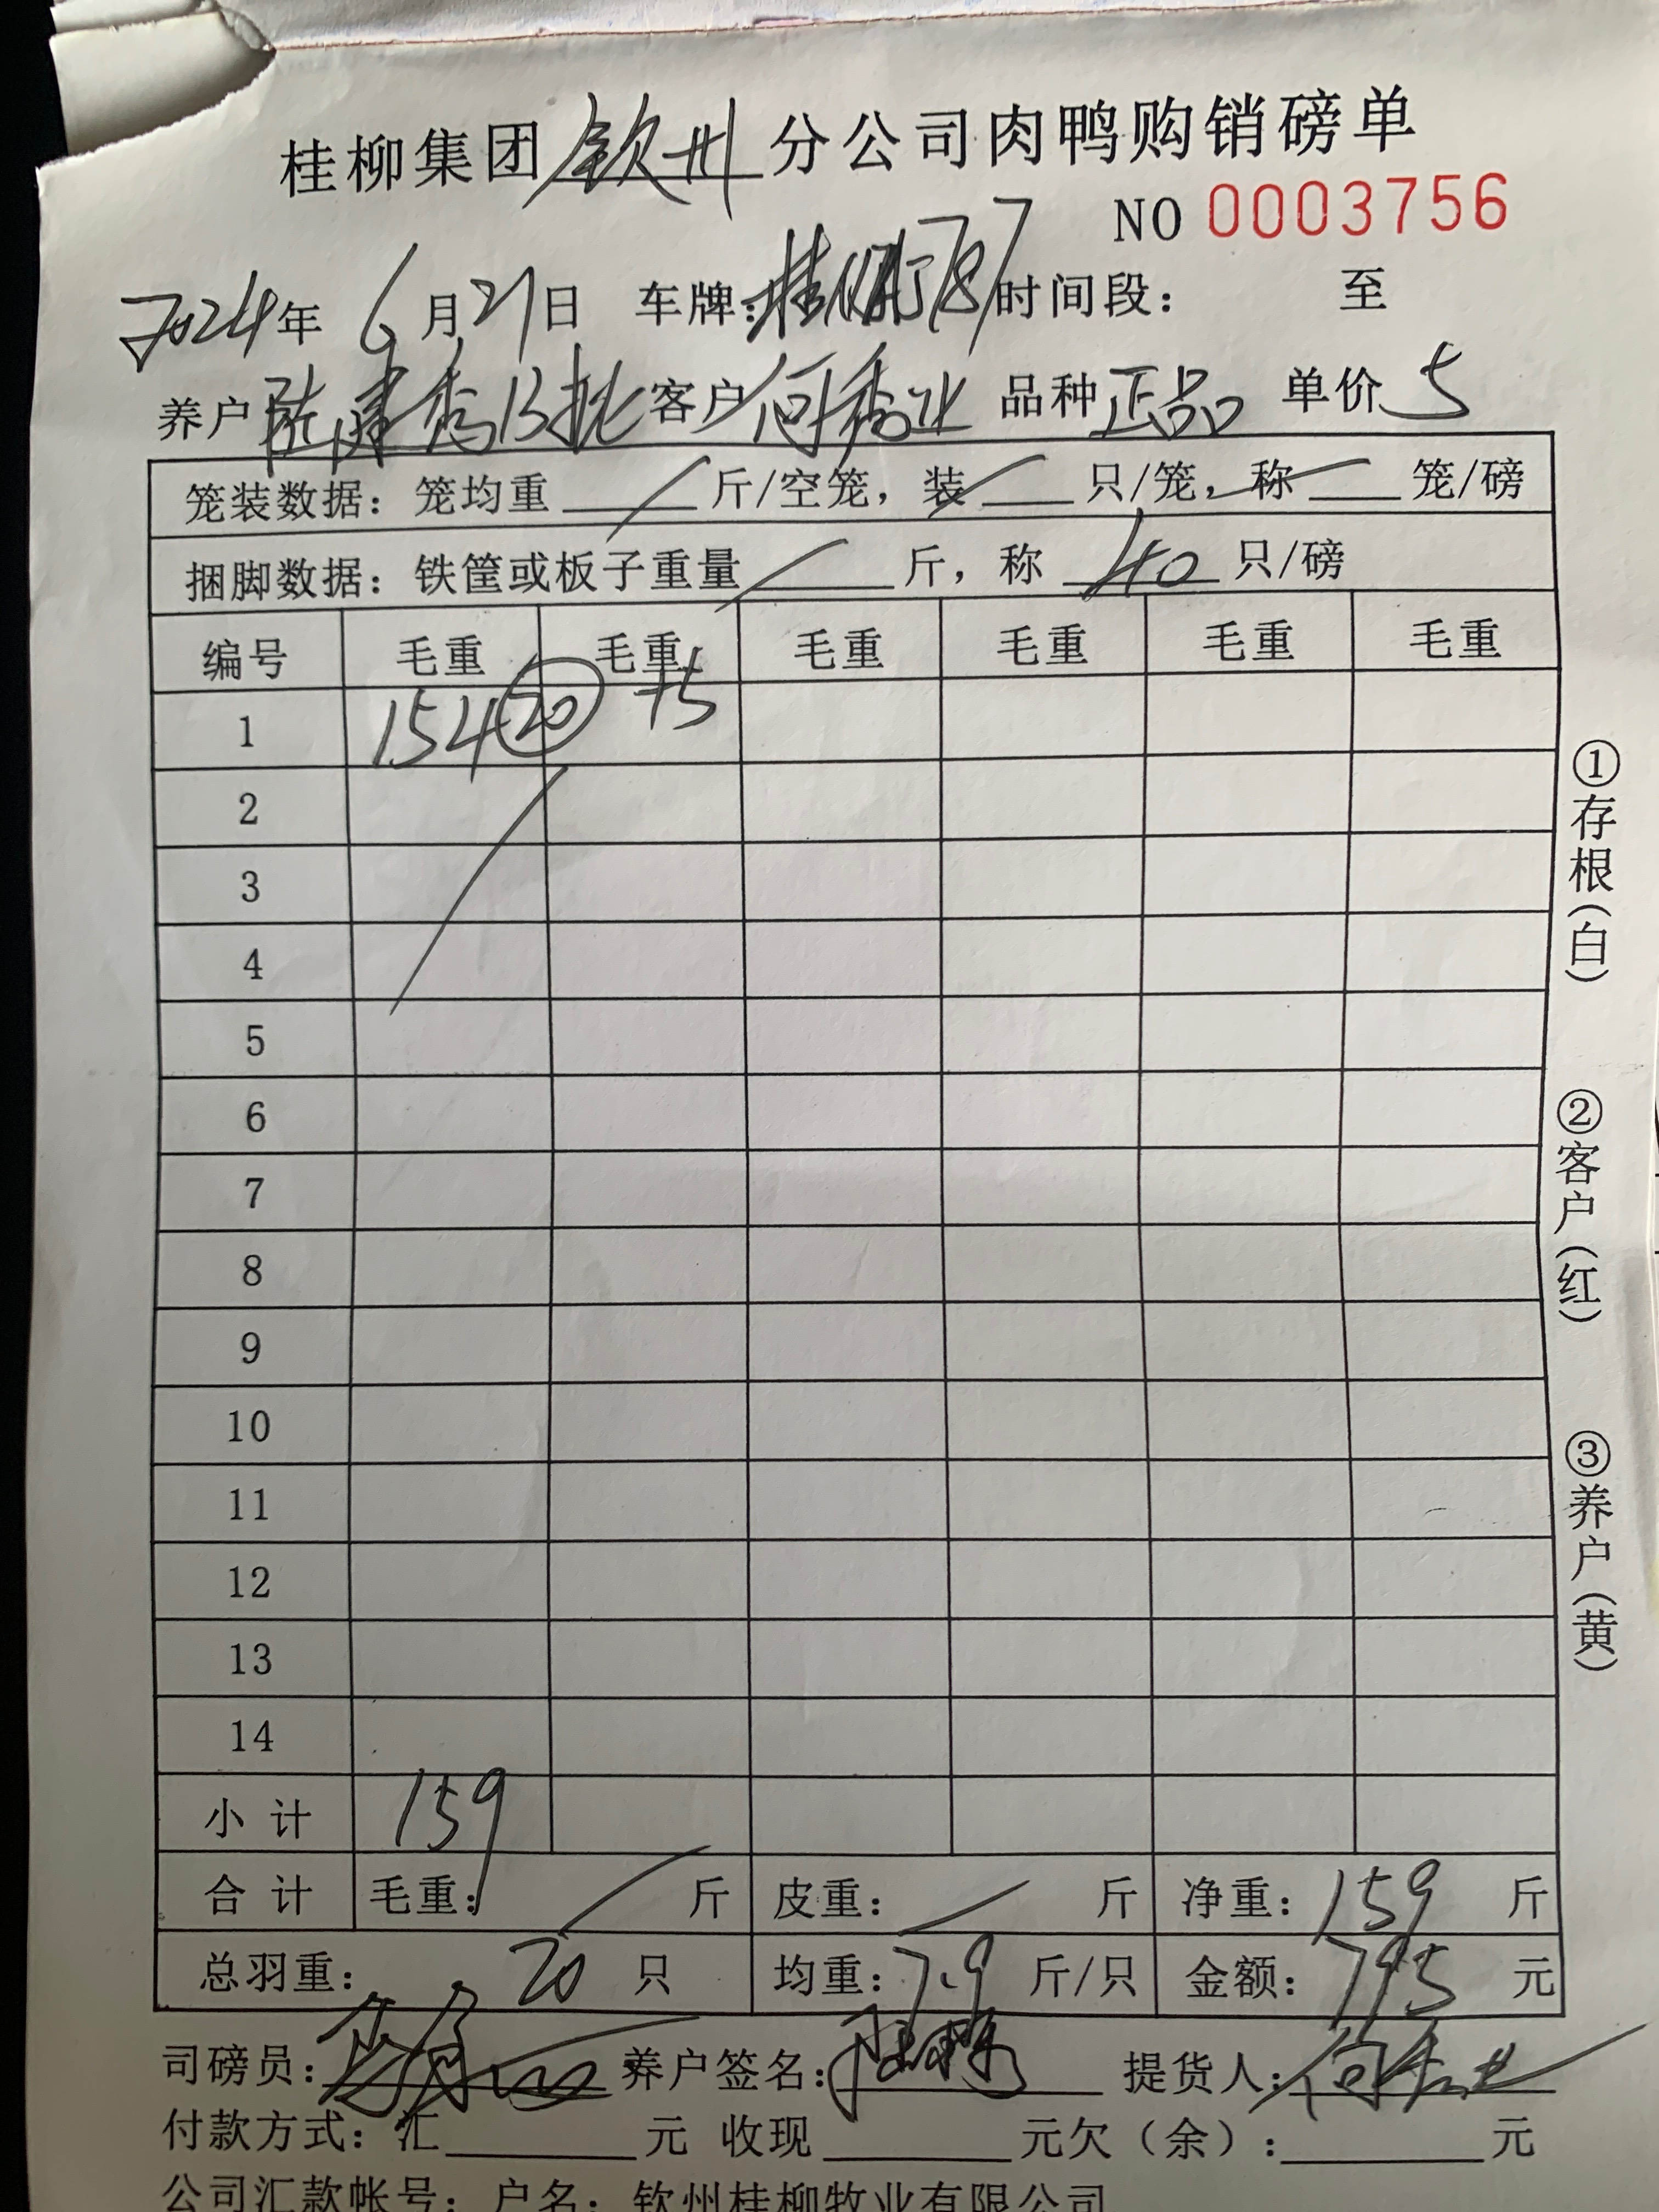 桂柳集团 钦州 分公司肉鸭购销磅单
NO 0003756
2024年 6月21日 车牌: 时间段: 至
养户 陆建秀13批 客户 何秀业 品种 正品 单价 5
笼装数据: 笼均重 斤/空笼, 装 只/笼, 称 笼/磅
捆脚数据: 铁筐或板子重量 斤, 称 40 只/磅
编号 毛重 毛重 毛重 毛重 毛重 毛重
1 154 20 +5
2
3
4
5
6
7
8
9
10
11
12
13
14
小计 159
合计 毛重: 斤 皮重: 斤 净重: 159 斤
总羽重: 20 只 均重: 7.9 斤/只 金额: 795 元
司磅员: 养户签名: 提货人: 何秀业
付款方式: 汇 元 收现 元欠(余): 元
公司汇款帐号: 户名: 钦州桂柳牧业有限公司
①存根(白)
②客户(红)
③养户(黄)